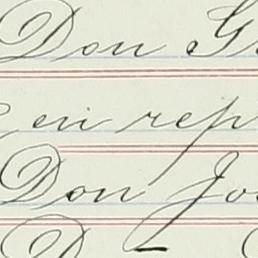 Don
en rep
Don Jo